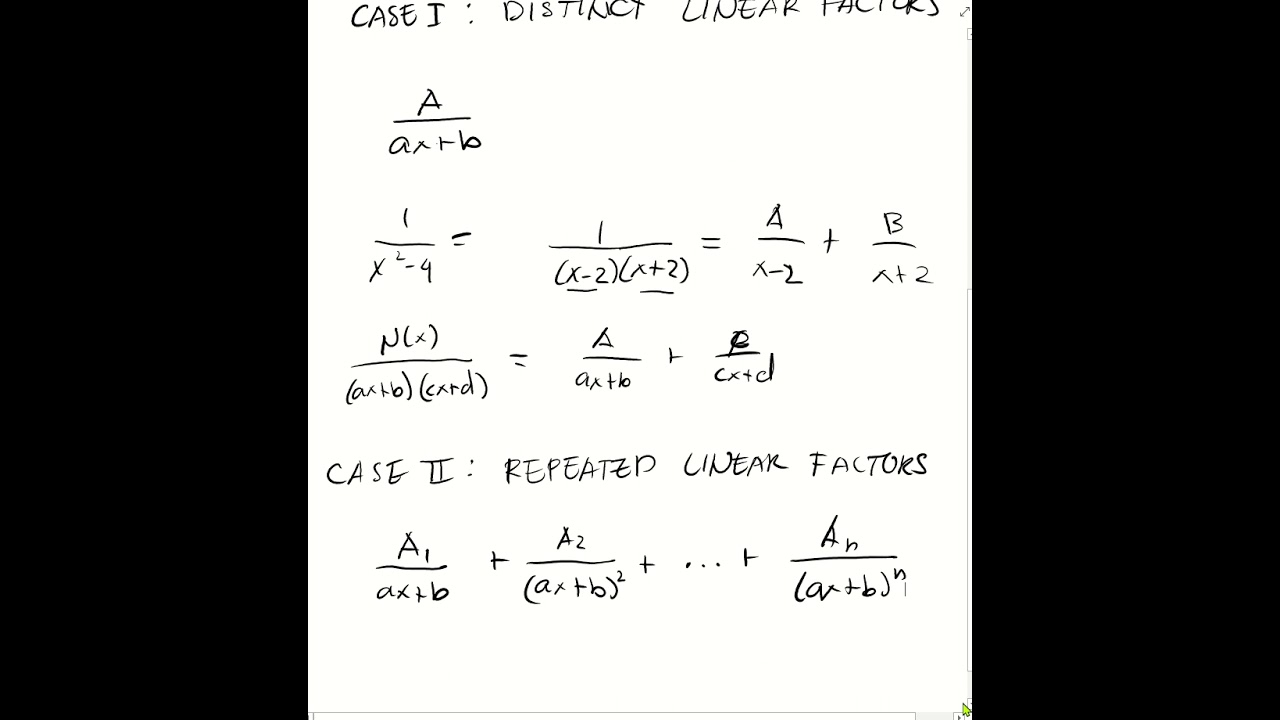 CASE I : DISTINCT LINEAR FACTORS
A/(ax+b)
1/(x²-4) = 1/((x-2)(x+2)) = A/(x-2) + B/(x+2)
N(x)/((ax+b)(cx+d)) = A/(ax+b) + /(cx+d)
CASE II : REPEATED LINEAR FACTORS
A₁/(ax+b) + A₂/(ax+b)² + ... + Aₙ/(ax+b)ⁿ